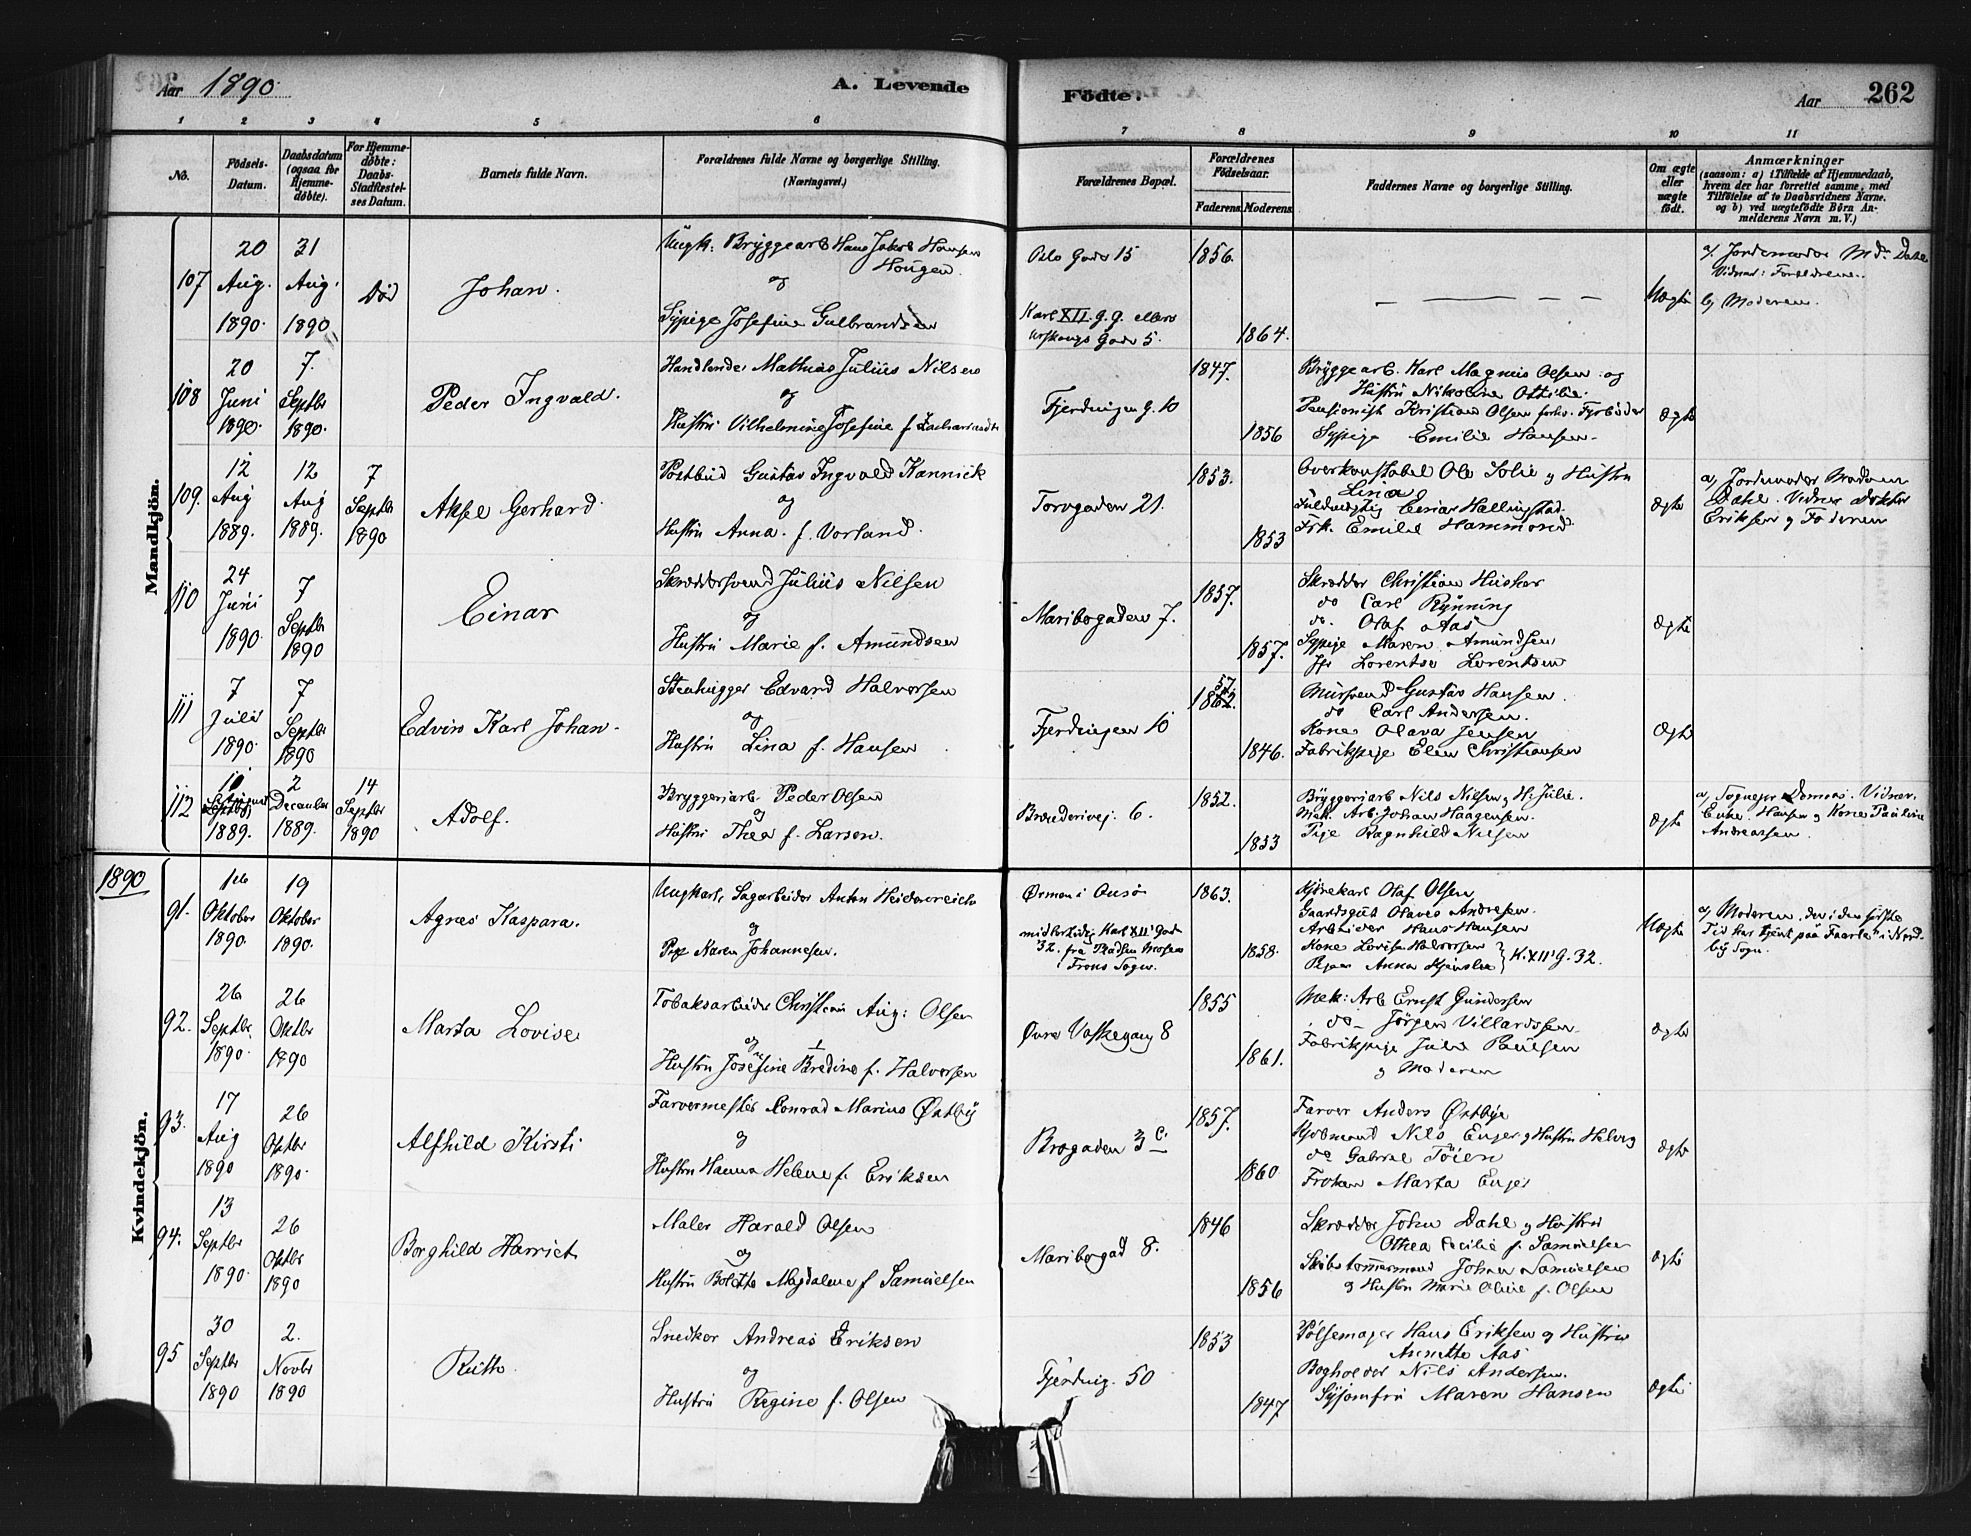 Aar 1890.
A. Levende
Födte.
Aar
262
1
2
3
4
5
6
7
8
9
10
11
No.
Födsels-
Datum.
Daabsdatum
(ogsaa for
Hjemme-
döbte).
For Hjemme-
döbte:
Daabs-
Stadfæstel-
ses Datum.
Barnets fulde Navn.
Forældrenes fulde Navne og borgerlige Stilling.
(Næringsvei.)
Forældrenes Bopæl.
Forældrenes
Födselsaar.
Faderens.
Moderens.
Faddernes Navne og borgerlige Stilling.
Om ægte
eller
uægte
födt.
Anmærkninger
(saasom: a) i Tilfælde af Hjemmedaab,
hvem der har forrettet samme, med
Tilföielse af to Daabsvidners Navne.
og b) ved uægtefödte Börn An-
melderens Navn m. V.)
Mandkjön.
107
20
Aug.
1890.
31
Aug.
1890
Död
Johan.
Ungk: Bryggearb Hans Jakob Hansen
Hougen.
og
Sypige Josefine Gulbrandsen
Oslo Gade 15
Karl XII. g. 9.
Gade 5.
1856.
1864.
Uægte
a/. Jordemoder Md. Dahl
Vidner: Forældrene.
b) Moderen.
108
20
Juni
1890.
7.
Septbr
1890.
Peder Ingvald.
Handlende Mathias Julius Nilsen
og
Hustru Vilhelmine Josefine f.
Fjerdingen G. 10
1847.
1856
Bryggearb. Karl Magnus Olsen og
Hustru Nikoline Ottilie.
Pensionist Kristian Olsen forhv. Fyrböder
Sypige Emilie Hansen.
Ægte
109.
12
Aug
1889.
12
Aug
1889.
7
Septbr
1890
Aksel Gerhard
Postbud Gustav Ingvald Kannick
og
Hustru Anna f. Vorland.
Torvgaden 21.
1853.
1853
Overkonstabel Ole Solie og Hustru
Lina
Fuldmægtig Einar Hallingstad.
Frk. Emilie Hammond
Ægte
a, Jordemoder Madam
Dahl. Vidner Doktor
Eriksen og Faderen
110
24
Juni
1890.
7
Septbr
1890
Einar
Skræddersvend Julius Nilsen
og
Hustru Marie f. Amundsen
Maribogaden 7.
1857.
1857.
Skrædder Christian Husker
do Carl Rynning
do. Olaf Aas
Sypige Maren Amundsen
Jfr Lorentse Lorentsen
Ægte
111
7
Juli
1890.
7
Septbr
1890
Edvin Karl Johan.
Stenhugger Edvard Halvorsen
og
Hustru Lina f. Hansen
Fjerdingen 10
57.
1862.
1846.
Mursvend Gustav Hansen.
do Carl Andersen.
Kone Olava Jensen
Fabrikpige Elen Christiansen
Ægte
112
10
Septbr
1889.
2
December
1889.
14
Septbr
1890
Adolf.
Bryggeriarb. Peder Olsen
og
Hustru Thea f. Larsen.
Brænderivej. 6.
1852.
1853
Bryggeriarb Nils Nilsen og H. Julie.
Mek. Arb. Johan Haagensen.
Pige Ragnhild Nilsen
Ægte
a, Sognepr Vidner
Enke. Hansen og Kone Pauline
Andreassen.
1890
Kvindekjön.
91.
16
Oktober
1890.
19
Oktober
1890.
Agnes Kaspara.
Ungkarl, Sagarbeider Anton Heidenreich
og
Pige Karen Johannesen.
Ørmen i Onsö
midlertidig Karl XII' Gad
32. fra
Sogn.
1863.
1858.
Kjörekarl Olaf Olsen
Gaardsgut Olaves Andresen.
Arbeider Hans Hansen
Kone Lovise Halvorsen
Pigen Anna } K. XII' G. 32.
Uægte
a, Moderen, der i den förste
Tid har tjent paa i Nord-
by Sogn.
92.
26
Septbr.
1890.
26
Oktbr
1890
Marta Lovise
Tobaksarbeider Christian Aug: Olsen
og
Hustru Josefine Bredine f. Halvorsen
Øvre Vaskegang 8
1855
1861.
Mek: Arb Ernst Gundersen
do Jörgen Villardssen
Fabrikpige Julie Paulsen
og Moderen
Ægte
93.
17
Aug
1890
26
Oktbr
1890.
Alfhild Kirsti
Farvermester Konrad Marius Østby
og
Hustru Hanna Helene f. Eriksen
Brogaden 3 c.
1857.
1860
Farver Anders Østbye
Kjöbmand Nils Enger og Hustru Helvig
do Gabriel Töien
Fröken Marta Enger
Ægte
94.
13
Septbr
1890.
26
Oktbr
1890
Borghild Harriet
Maler Harald Olsen
og
Hustru Bolette Magdalene f Samuelsen
Maribogad 8.
1846
1856
Skrædder John Dahl og Hustru
Othea Cecilie f. Samuelsen
Skibstömmermand Johan Samuelsen
og Hustru Marie Oline f. Olsen
Ægte
95
30
Septbr
1890
2.
Novbr
1890
Ruth.
Snedker Andreas Eriksen
og
Hustru Regine f. Olsen
Fjerding. 50
1853
1847
Pölsemager Hans Eriksen og Hustru
Annette Aas
Bogholder Nils Andersen.
Syjomfru Maren Hansen
Ægte